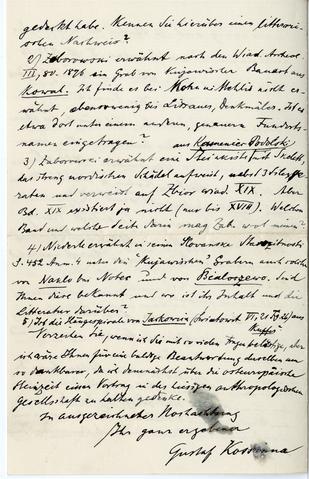 gedeckt habe. Kennen Sie hierüber einen litterari-
schen Nachweis?
2) Zaborowski erwähnt nach den Wiad. Archeol.
III, 80. 1876 ein Grab von Kujawischer Bauart aus
Kowal. Ich finde es bei Mehlis nicht er-
wähnt, ebensowenig bei Lissauer, Denkmäler. Ist es
etwa dort unter einem andern, genauern Fundorts-
namen eingetragen?
aus Kamieniec Podolski
3) Zaborowski erwähnt eine Steinkiste mit Skelett,
das streng nordischen Schädel aufweist, nebst 3 Silex-
raten und verweist auf Zbior wiad. XIX. Aber
Bd. XIX existiert ja nicht (nur bis XVIII). Welchen
Band und welche Seite darin mag Zab. wol meinen?
4) Niederle erwähnt in seinen Slovanske Starozitnosti
S. 452 Anm. 4 unter den "Kujawischen" Gräbern auch solche
von Naklo bei Notec und von Bialoszewo. Sind
Ihnen diese bekannt und wo ist ihr Inhalt und die
Litteratur darüber?
5) Ist die Spirale von (Swiatowit VI, aus
Kupfer?
Verzeihen Sie, wenn ich Sie mit so vielen Fragen belästige, aber
ich wäre Ihnen für eine baldige Beantwortung derselben um
so dankbarer, da ich demnächst über die osteuropäische
Steinzeit einen Vortrag in der hiesigen anthropologischen
Gesellschaft zu halten gedenke.
In ausgezeichneter Hochachtung
Ihr ganz ergebener
Gustaf Kossinna